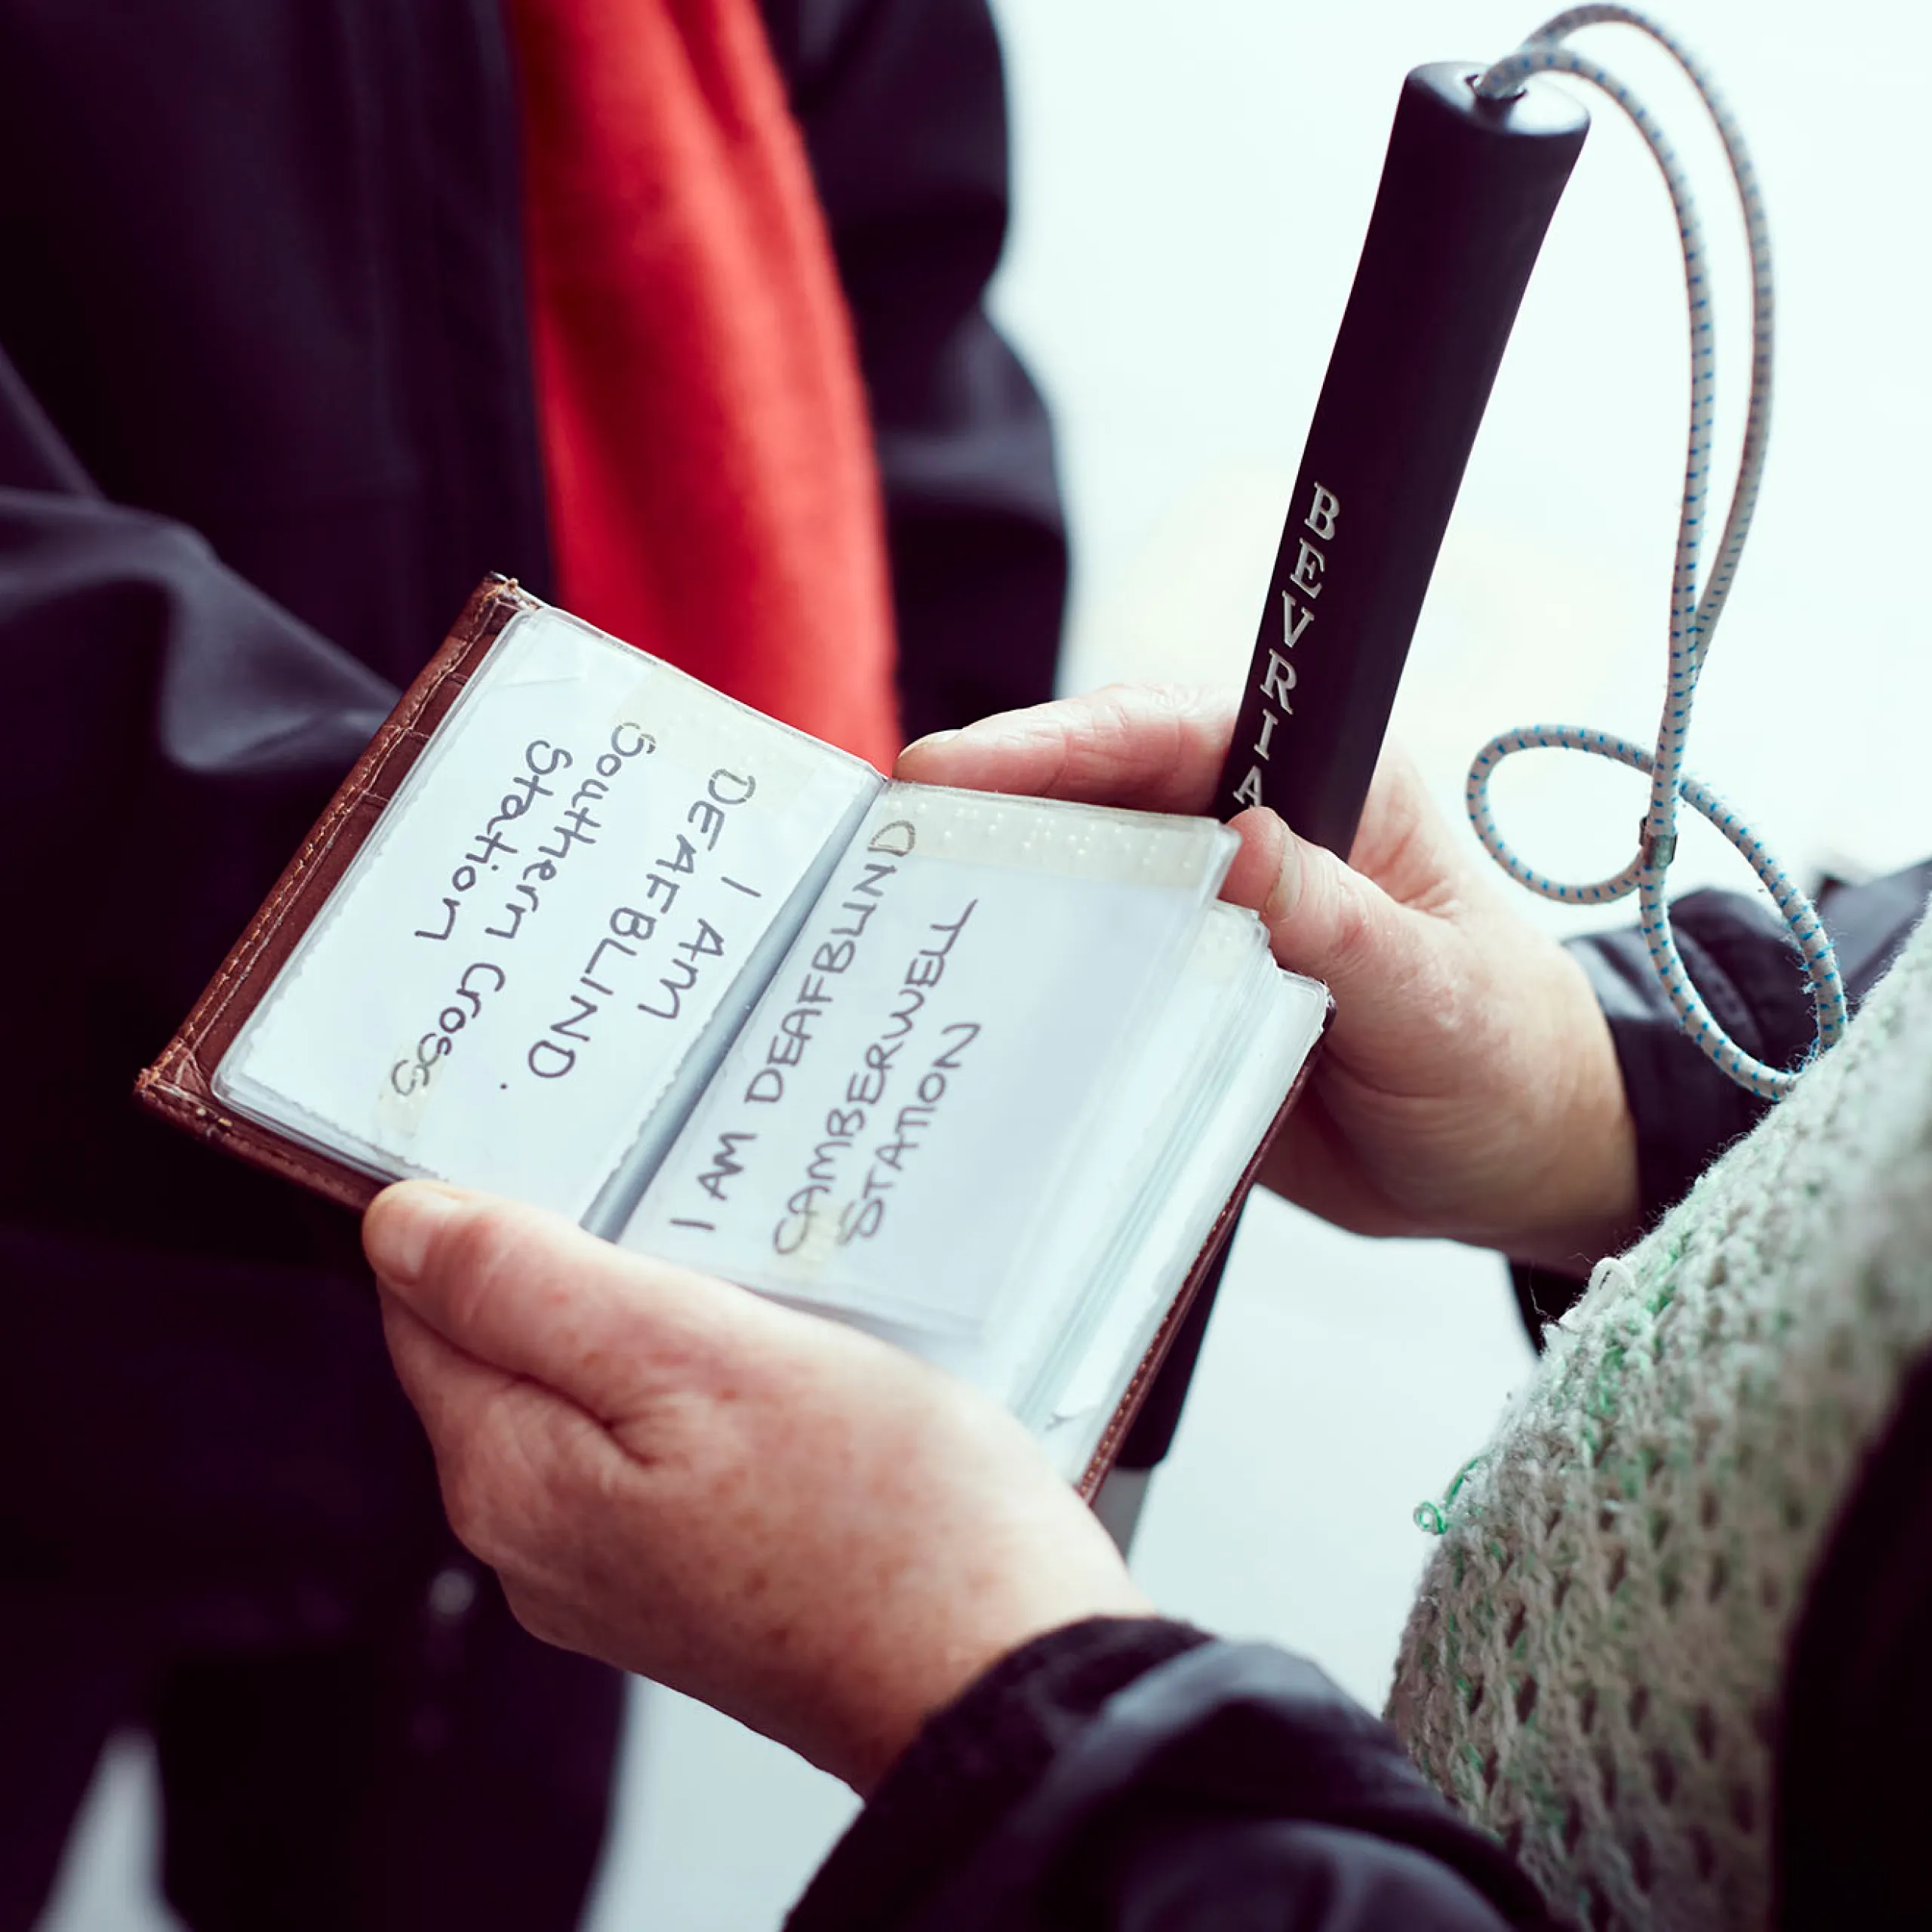 I AM
DEAFBLIND.
Southern Cross
Station
I AM DEAFBLIND
CAMBERWELL
STATION
BEVRIA